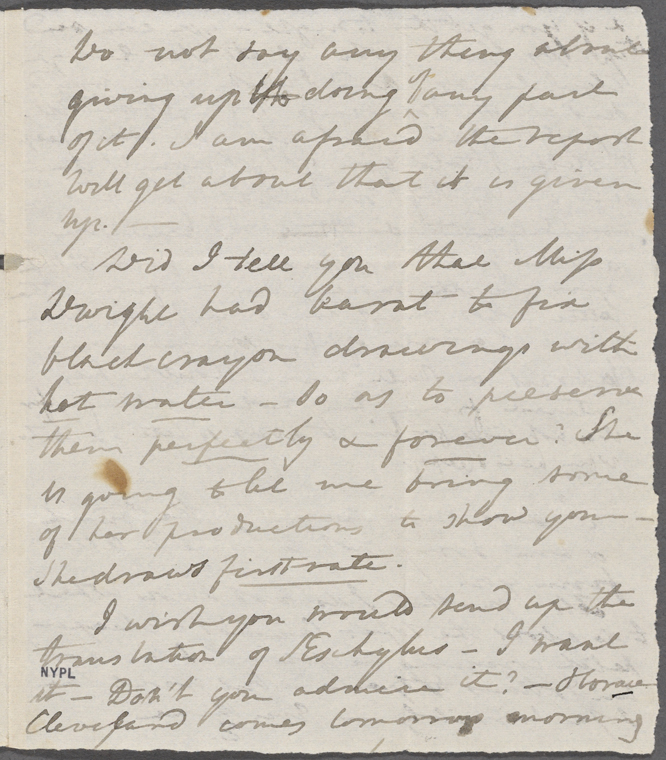 Do not say any thing about
giving up the doing of any part
of it. I am afraid the report
will get about that it is given
up. —
Did I tell you that Miss
Dwight had learnt to fix
black crayon drawings with
hot water — so as to preserve
them perfectly & forever? She
is going to let me bring some
of her productions to show you —
She draws first rate.
I wish you would send up the
translation of Æschylus — I want
NYPL
it — Don't you admire it? — Horace
Cleveland comes tomorrow morning